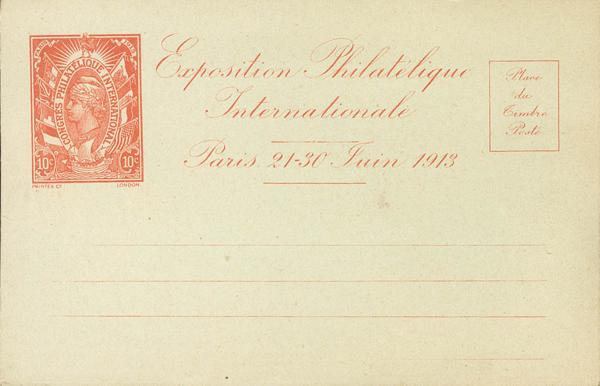 PARIS 1913
CONGRÈS PHILATÉLIQUE INTERNATIONAL
10c 10c
PRINTEX Co. LONDON.
Exposition Philatélique
Internationale
Paris 21-30 Juin 1913
Place
du
Timbre
Poste